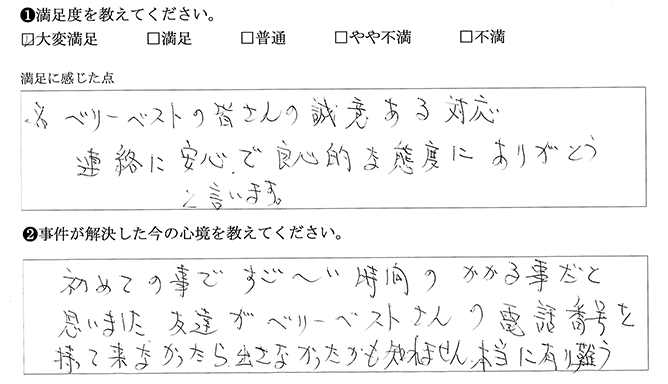 ❶満足度を教えてください。
☑大変満足 □満足 □普通 □やや不満 □不満
満足に感じた点
ベリーベストの皆さんの誠意ある対応
連絡に安心、で良心的な態度にありがとう
と言います。
❷事件が解決した今の心境を教えてください。
初めての事ですご〜い時間のかかる事だと
思いました 友達がベリーベストさんの電話番号を
持って来なかったら出さなかったかも知れません、本当に有り難う